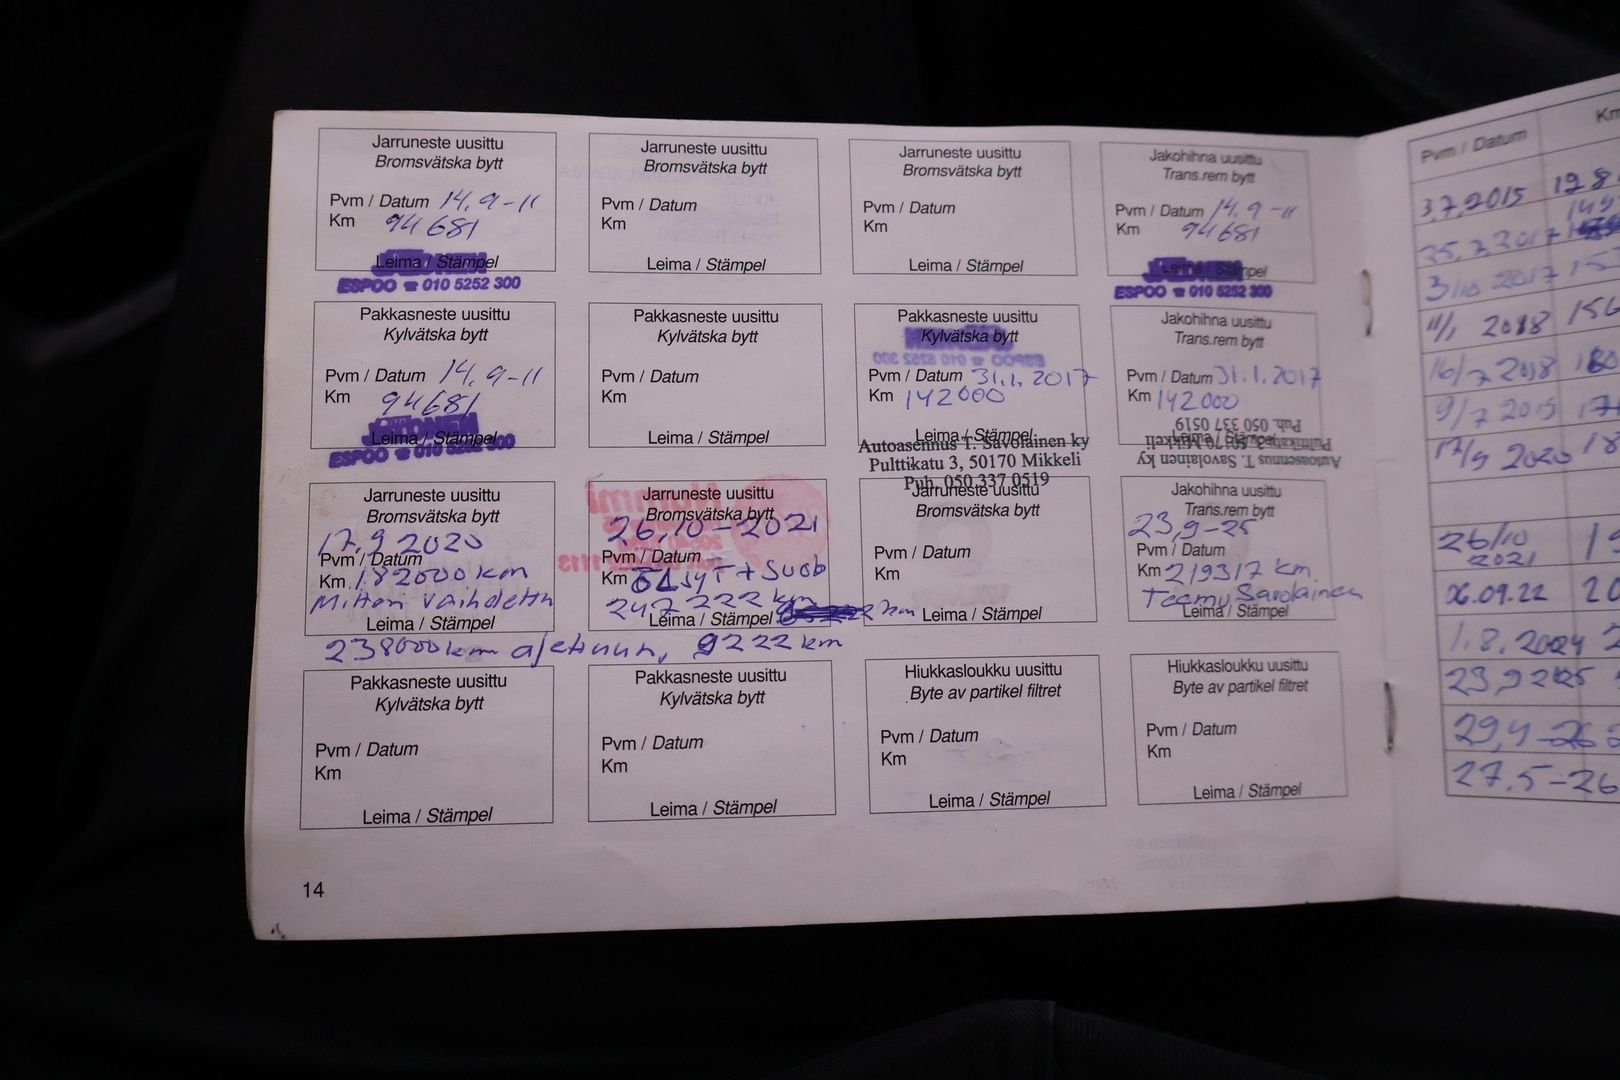 Jarruneste uusittu
Bromsvätska bytt
Pvm / Datum 14.9-11
Km 94681
Leima / Stämpel
ESPOO ☎ 010 5252 300
Jarruneste uusittu
Bromsvätska bytt
Pvm / Datum
Km
Leima / Stämpel
Jarruneste uusittu
Bromsvätska bytt
Pvm / Datum
Km
Leima / Stämpel
Jakohihna uusittu
Trans.rem bytt
Pvm / Datum 14.9-11
Km 94681
Leima / Stämpel
ESPOO ☎ 010 5252 300
Pakkasneste uusittu
Kylvätska bytt
Pvm / Datum 14.9-11
Km 94681
Leima / Stämpel
ESPOO ☎ 010 5252 300
Pakkasneste uusittu
Kylvätska bytt
Pvm / Datum
Km
Leima / Stämpel
Pakkasneste uusittu
Kylvätska bytt
ESPOO ☎ 010 5252 300
Pvm / Datum 31.1.2017
Km 142000
Leima / Stämpel
Autoasennus T. Savolainen ky
Pulttikatu 3, 50170 Mikkeli
Puh. 050 337 0519
Jakohihna uusittu
Trans.rem bytt
Pvm / Datum 31.1.2017
Km 142000
Leima / Stämpel
Autoasennus T. Savolainen ky
Pulttikatu 3, 50170 Mikkeli
Puh. 050 337 0519
Jarruneste uusittu
Bromsvätska bytt
17.9 2020
Pvm / Datum
Km 182000 km
Leima / Stämpel
Jarruneste uusittu
Bromsvätska bytt
26.10-2021
Pvm / Datum
Km
247 222 km
Leima / Stämpel
km
238000 km ajettuun, 9222 km
Jarruneste uusittu
Bromsvätska bytt
Pvm / Datum
Km
Leima / Stämpel
Jakohihna uusittu
Trans.rem bytt
23,9-25
Pvm / Datum
Km 219317 km.
Teemu Savolainen
Leima / Stämpel
Pakkasneste uusittu
Kylvätska bytt
Pvm / Datum
Km
Leima / Stämpel
Pakkasneste uusittu
Kylvätska bytt
Pvm / Datum
Km
Leima / Stämpel
Hiukkasloukku uusittu
Byte av partikel filtret
Pvm / Datum
Km
Leima / Stämpel
Hiukkasloukku uusittu
Byte av partikel filtret
Pvm / Datum
Km
Leima / Stämpel
14
Pvm / Datum Km
3.7.2015 128
25.7.2017
3/10 2017 15
11/1 2018 156
16/7 2018
9/7 2019
17/9 2020 18
26/10 2021
06.09.22 20
1.8.2024
23,9 2025
29,4-26
27.5-26